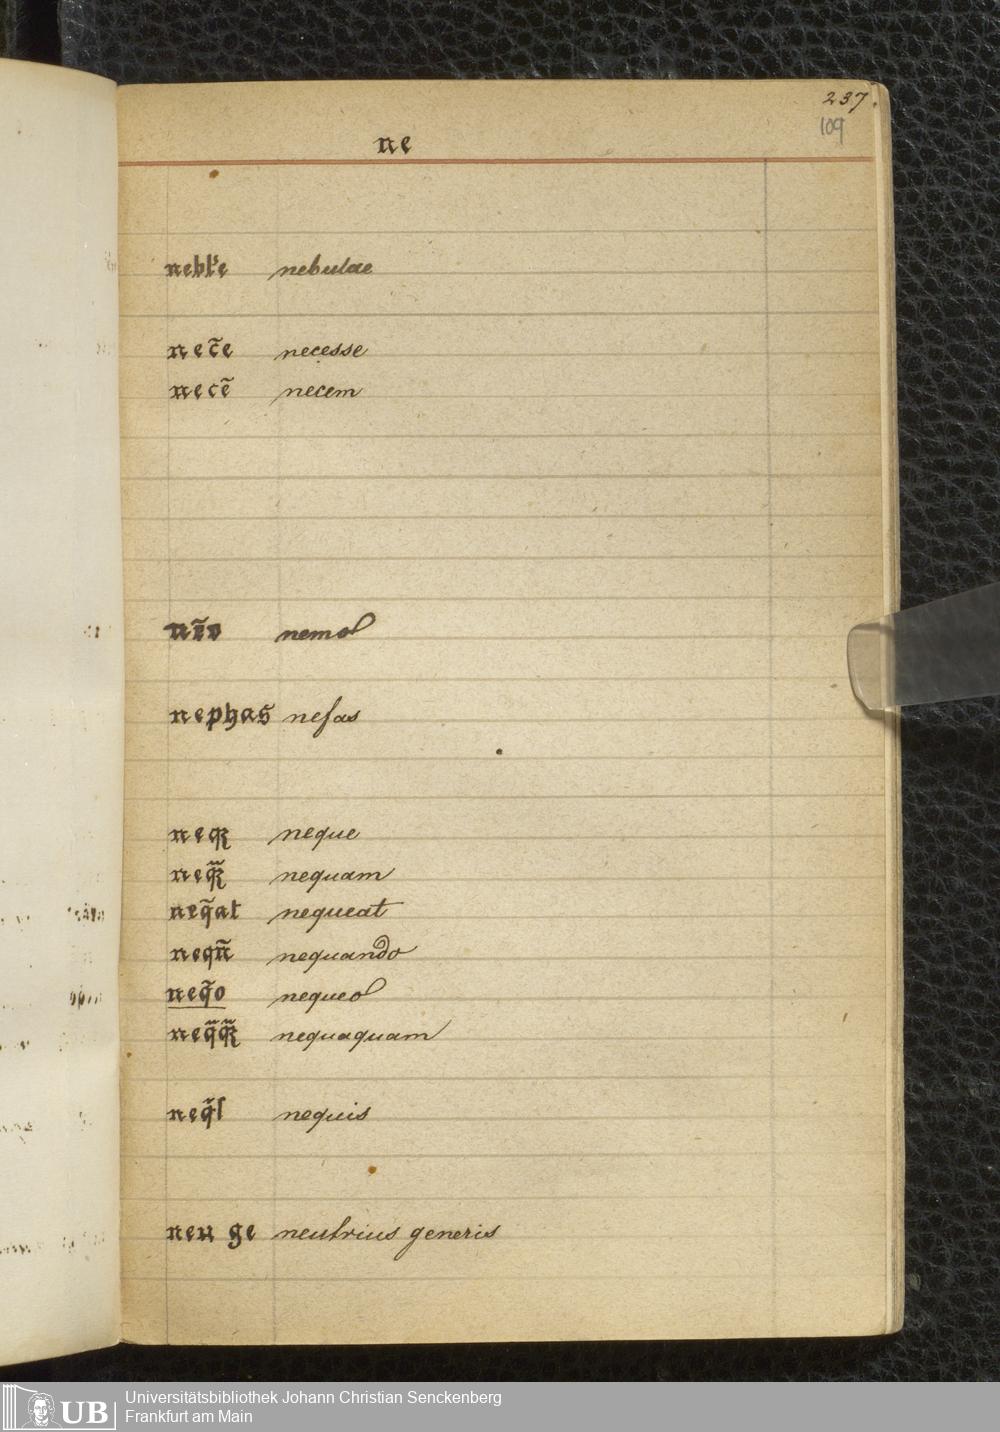 237
109
ne
nebl'e nebulae
nec̃e necesse
necẽ necem
nẽo nemo
nephas nefas
neqꝫ neque
neq̃ꝫ nequam
neq̃at nequeat
neqñ nequando
neq̃o nequeo
neq̃q̃ꝫ nequaquam
neq̃s nequis
neu ge neutrius generis
UB
Universitätsbibliothek Johann Christian Senckenberg
Frankfurt am Main